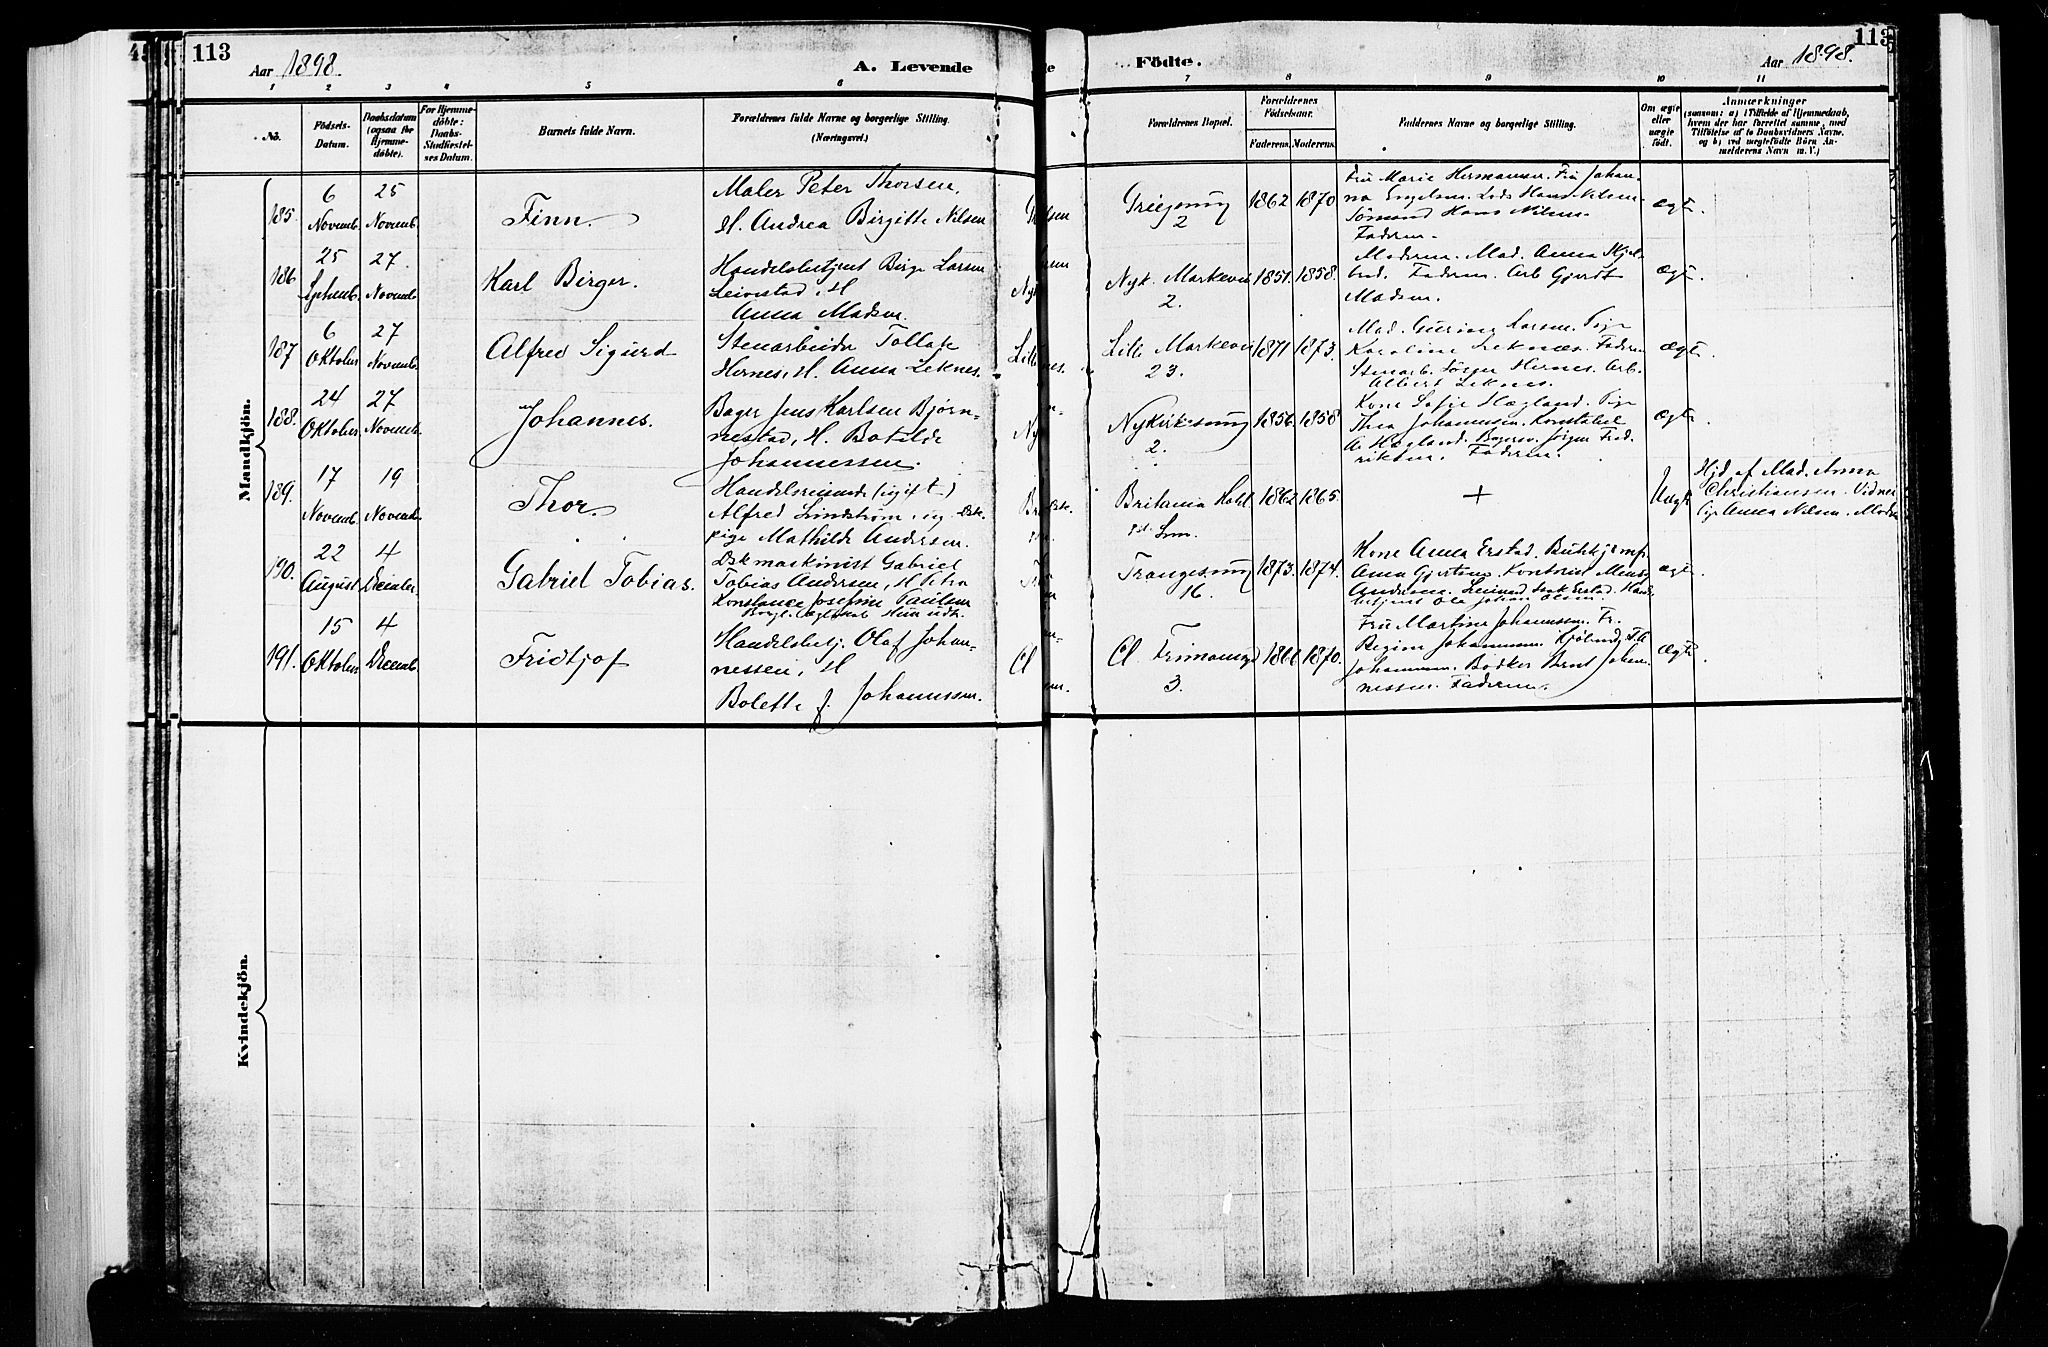 113
Aar 1898.
A. Levende
Födte.
Aar 1898.
113
1 2 3 4 5 6 7 8 9 10 11
No.
Födsels-
Datum.
Daabsdatum
(ogsaa for
Hjemme-
döbte).
For Hjemme-
döbte:
Daabs-
Stadfæstel-
ses Datum.
Barnets fulde Navn.
Forældrenes fulde Navne og borgerlige Stilling.
(Næringsvei.)
Forældrenes Bopæl.
Forældrenes
Födselsaar.
Faderens.
Moderens.
Faddernes Navne og borgerlige Stilling.
Om ægte
eller
uægte
födt.
Anmærkninger
(saasom: a) i Tilfælde af Hjemmedaab,
hvem der har forrettet samme, med
Tilföielse af to Daabsvidners Navne,
og b) ved uægtefödte Börn An-
melderens Navn m. V.)
Mandkjön.
185. 6 Novemb. 25 Novemb. Finn.
Maler Peter Thorsen,
H. Andrea Birgitte Nilsen
2 1862 1870
Fru Marie Hermansen. Fru Johan-
na Engelsen. Lods Hans Nilsen.
Sømand Hans Nilsen.
Faderen.
ægte.
186. 25 Septemb. 27 Novemb. Karl Birger.
Handelsbetjent Birge Larsen
Leivestad, H.
Anna Madsen.
Nyk. Markevei 2. 1851. 1858.
Moderen. Mad. Anna
Faderen. Arb Gjerdt
Madsen.
ægte.
187 6 Oktober 27 Novemb. Alfred Sigurd
Stenarbeider Tollak
Hernes, H. Anna Leknes.
Lille Markevei 23. 1871 1873.
Mad. Guring Larsen. Pige
Karoline Leknes. Faderen
Stenarb. Hernes. Arb.
Albert Leknes.
ægte.
188. 24 Oktober 27 Novemb. Johannes.
Bager Jens Karlsen Bjørn-
nestad, H. Botilde
Johannessen.
Nykirkesmug 2. 1856. 1858
Kone Sofie Hægland. Pige
Thea Johannessen. Konstabel
A. Hægland. Bagersv. Jørgen Fred-
riksen. Faderen.
ægte.
189. 17 Novemb. 19 Novemb. Thor.
Handelsreisende (ugift)
Alfred Lindstrøm, ug.
pige Mathilde Andersen.
Britania Hotel. 1862 1865.
+
Uægte
Hjd. af Mad. Anna
Christiansen. Vidner
Anna Nilsen. Moderen
190. 22 August 4 December Gabriel Tobias.
Dskmaskinist Gabriel
Tobias Andersen, H. Petra
Konstance Josefine Paulsen
Trangesmug 16. 1873. 1874.
Kone Anna Erstad.
Anna Gjertsen. Kontorist
Andersen. Isak Erstad. Hand-
elsbetjent Ole Johan Olsen.
ægte.
191. 15 Oktober 4 Decemb. Fridtjof
Handelsbetj. Olaf Johan-
nessen, H.
Bolette J. Johannessen.
Cl. 3. 1866 1870.
Fru Martine Johannessen. Fr.
Regine Johannessen. Kjøbmd.
Johannessen. Bødker Bernt Johan-
nessen. Faderen.
ægte
Kvindekjön.